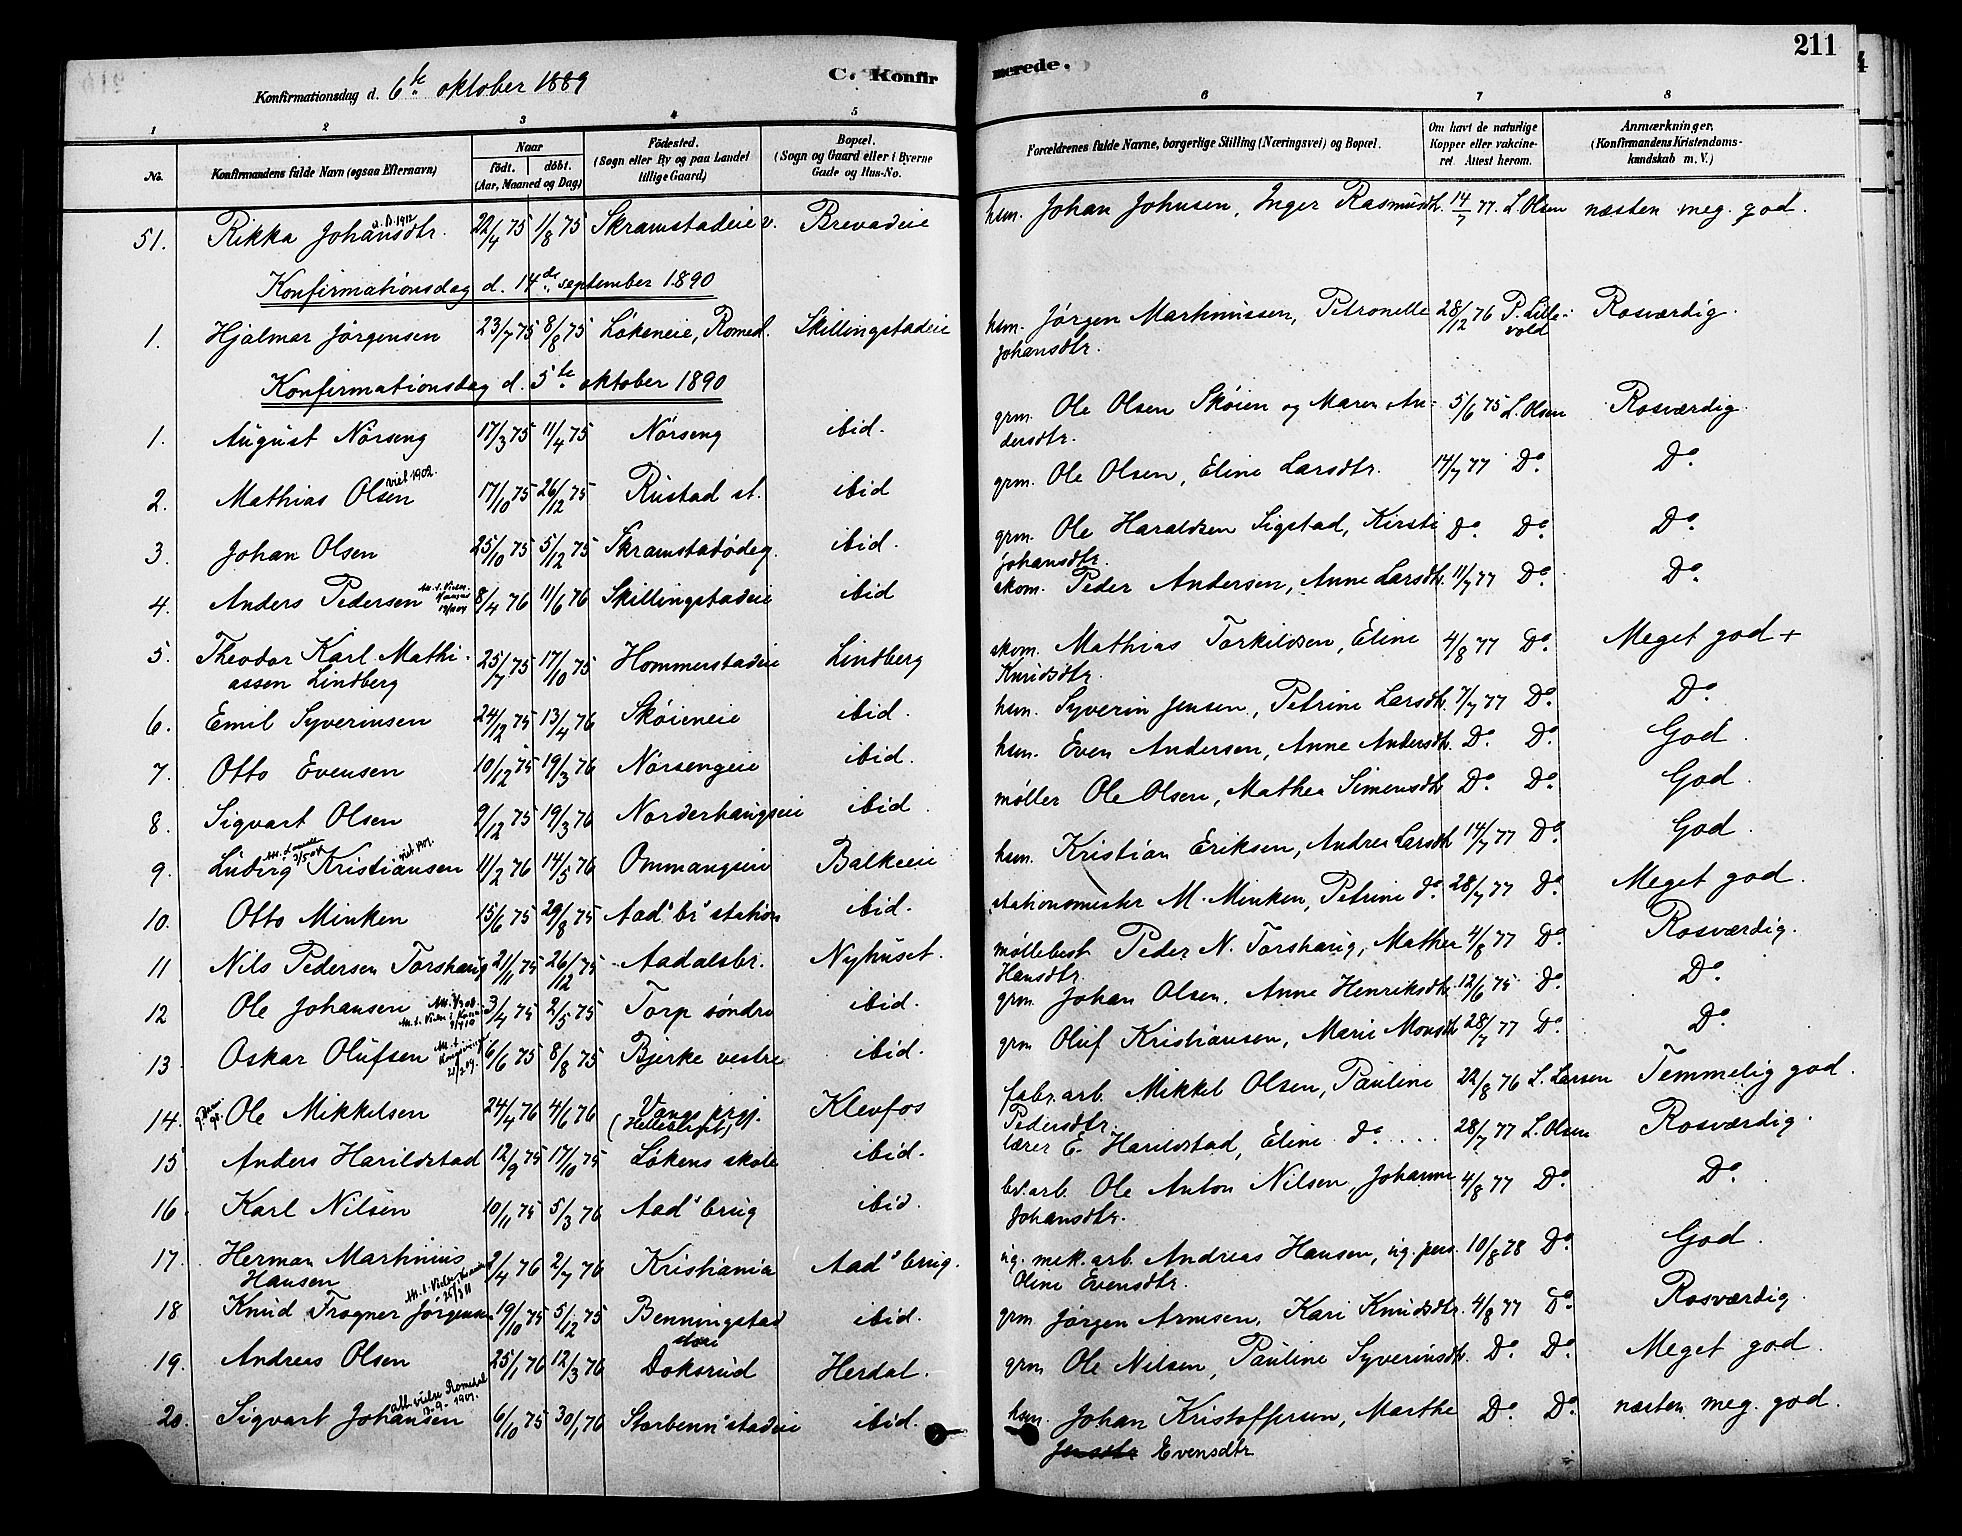 211
C. Konfirmerede.
Konfirmationsdag d. 6te oktober 1889
1 2 3 4 5 6 7 8
No. Konfirmandens fulde Navn (ogsaa Efternavn) Naar födt. döbt. (Aar, Maaned og Dag) Födested. (Sogn eller By og paa Landet tillige Gaard) Bopæl. (Sogn og Gaard eller i Byerne Gade og Hus-No. Forældrenes fulde Navne, borgerlige Stilling (Næringsvei) og Bopæl. Om havt de naturlige Kopper eller vakcineret. Attest herom. Anmærkninger. (Konfirmandens Kristendomskundskab m. V.)
51. Rikka Johansdtr. 22/4 75 1/8 75 Skramstadeie v. Brevadeie hsm. Johan Johnsen, Inger Rasmusdt. 14/7 77. L. Olsen næsten meg. god.
Konfirmationsdag d. 14de september 1890
1. Hjalmar Jörgensen 23/7 75 8/8 75 Lökeneie, Romed. Skillingstadeie hsm. Jörgen Martinussen, Petronelle Johansdtr. 28/12 76 P. Lillevold Rosværdig.
Konfirmationsdag d. 5te oktober 1890
1. August Nörseng 17/3 75 11/4 75 Nörseng ibid. grm. Ole Olsen Skøien og Maren Andersdtr. 5/6 75 L. Olsen Rosværdig
2. Mathias Olsen viet 1902. 17/10 75 26/12 75 Rustad st. ibid grm. Ole Olsen, Eline Larsdtr. 14/7 77 Do. Do.
3. Johan Olsen 25/10 75 5/12 75 Skramstadödeg. ibid. grm. Ole Haraldsen Sigstad, Kirsti Johansdtr. Do. Do. Do.
4. Anders Pedersen 8/4 76 11/6 76 Skillingstadeie ibid skom. Peder Andersen, Anne Larsdtr. 11/7 77 Do. Do.
5. Theodor Karl Mathiassen Lindberg 25/7 75 17/10 75 Hommerstadeie Lindberg skom. Mathias Torkildsen, Eline Knudsdtr. 4/8 77 Do. Meget god +
6. Emil Syverinsen 24/12 75 13/4 76 Sköieneie ibid. hsm. Syverin Jensen, Petrine Larsdtr. 7/7 77 Do. Do.
7. Otto Evensen 10/12 75 19/3 76 Nörsengeie ibid. hsm. Even Andersen, Anne Andersdtr. Do. Do. God.
8. Sigvart Olsen 2/12 75 19/3 76 Norderhaugseie ibid. möller Ole Olsen, Mathea Simensdtr Do. Do. God
9. Ludvig Kristiansen 11/2 76 14/5 76 Ommangseie Balkeeie hsm. Kristian Eriksen, Andrea Larsdtr 14/7 77 Do. God.
10. Otto Minken 15/6 75 29/8 75 Aadˢ brˢ station ibid. stationsmester M. Minken, Petrine do. 28/7 77 Do. Meget god.
11 Nils Pedersen Torshaug 21/11 75 26/12 75 Aadalsbr. Nyhuset. möllebest Peder N. Torshaug, Mathea Hansdtr. 4/8 77 Do. Rosværdig.
12 Ole Johansen 3/4 75 2/5 75 Torp söndre ibid. grm. Johan Olsen. Anne Henriksdtr. 12/6 75 Do. Do.
13. Oskar Olufsen 6/6 75 8/8 75 Bjerke vestre ibid. grm Oluf Kristiansen, Marie Monsdtr 28/7 77 Do. Do.
14. Ole Mikkelsen 24/4 76 4/6 76 Vangs prgj. Klevfos fabr. arb. Mikkel Olsen, Pauline Pedersdtr. 22/8 76 L. Larsen Temmelig god.
15 Anders Harildstad 12/9 75 17/10 75 Lökens skole ibid. lærer E. Harildstad, Eline do.... 28/7 77 L. Olsen Rosværdig.
16. Karl Nilsen 10/11 75 5/3 76 Aadˢ brug ibid. br. arb. Ole Anton Nilsen, Johanne Johansdtr. 4/8 77 Do. Do.
17. Herman Martinius Hansen 2/4 76 2/7 76 Kristiania Aadˢ brug. ug. mek. arb. Andreas Hansen, ug. pers. Oline Evensdtr. 10/8 78 Do. God.
18 Knud Frogner Jörgensen 19/10 75 5/12 75 Benningstad ibid. grm. Jörgen Arnesen, Kari Knudsdtr. 4/8 77 Do. Rosværdig.
19. Andreas Olsen 25/1 76 12/3 76 store Doksrud Herdal. grm Ole Nilsen, Pauline Syverinsdtr. Do. Do. Meget god.
20. Sigvart Johansen 6/10 75 30/1 76 Storbenn'stadeie ibid. hsm. Johan Kristoffersen, Marthe Evensdtr Do. Do. næsten meg. god.